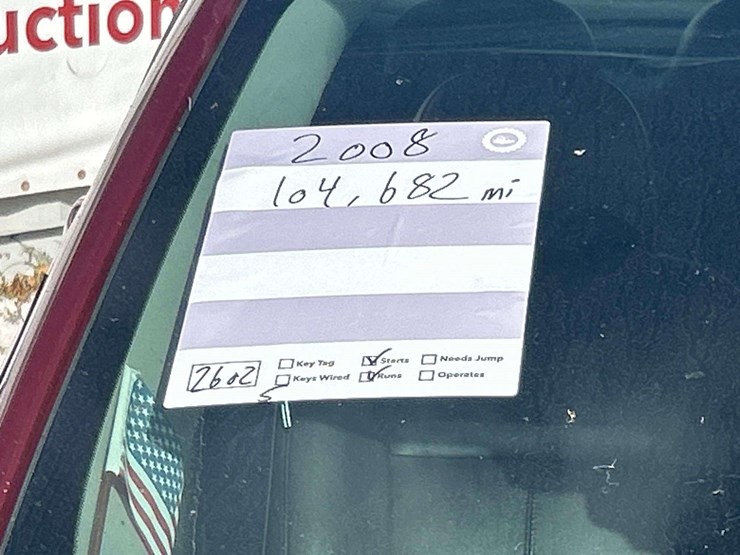 uction
2008
104,682 mi
Key Tag Starts Needs Jump
2602 Keys Wired Runs Operates